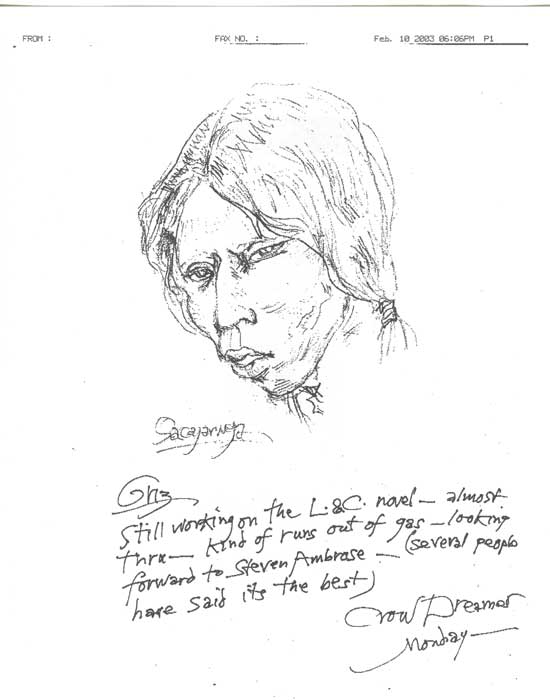 FROM : FAX NO. : Feb. 10 2003 06:06PM P1
Sacajaweja
Griz
Still working on the L.&C. novel — almost
thru — kind of runs out of gas — looking
forward to Steven Ambrose — (several people
have said its the best)
Crow Dreamer
Monday —